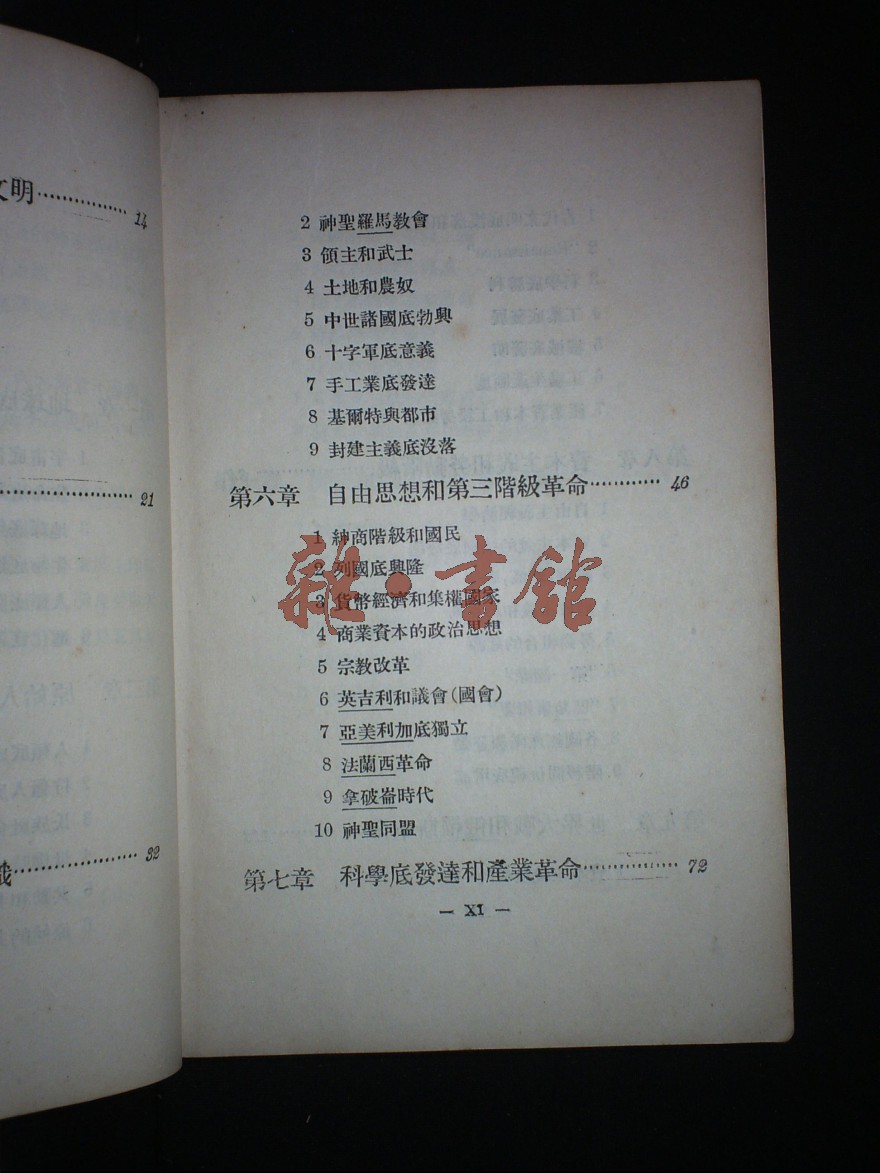 文明 14
21
32
2 神聖羅馬教會
3 領主和武士
4 土地和農奴
5 中世諸國底勃興
6 十字軍底意義
7 手工業底發達
8 基爾特與都市
9 封建主義底沒落
第六章 自由思想和第三階級革命………… 46
1 紳商階級和國民
2 列國底興隆
3 貨幣經濟和集權國家
4 商業資本的政治思想
5 宗教改革
6 英吉利和議會(國會)
7 亞美利加底獨立
8 法蘭西革命
9 拿破崙時代
10 神聖同盟
第七章 科學底發達和產業革命………… 72
— XI —
雜·書館